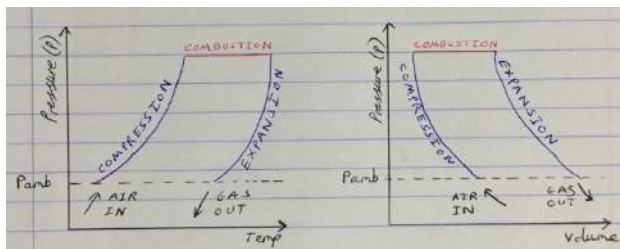 Pressure (P)
COMBUSTION
COMPRESSION
EXPANSION
Pamb
AIR
IN
GAS
OUT
Temp
Pressure (P)
COMBUSTION
COMPRESSION
EXPANSION
Pamb
AIR
IN
GAS
OUT
Volume